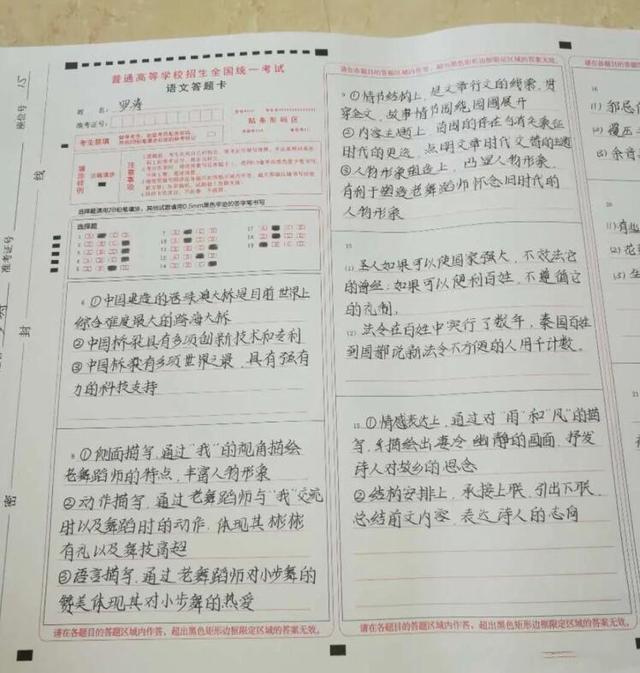 普通高等学校招生全国统一考试
语文答题卡
姓 名：
准考证号
贴条形码区
考生禁填
注意事项
选择题请用2B铅笔填涂，其他试题请用0.5mm黑色字迹的签字笔书写
选择题
6 ①中国建造的港珠澳大桥是目前世界上
综合难度最大的跨海大桥
②中国桥梁具有多项创新技术和专利
③中国桥梁有多项世界之最，具有强有
力的科技支持
8 ①侧面描写，通过“我”的视角描绘
老舞蹈师的特点，丰富人物形象
②动作描写，通过老舞蹈师与“我”交谈
时以及舞蹈时的动作，体现其彬彬
有礼以及舞技高超
③语言描写，通过老舞蹈师对小步舞的
赞美体现其对小步舞的热爱
请在各题目的答题区域内作答，超出黑色矩形边框限定区域的答案无效。
请在各题目的答题区域内作答，超出黑色矩形边框限定区域的答案无效。
9 ①情节结构上，是文章行文的线索，贯
穿全文，故事情节围绕园圃展开
②内容主题上，园圃的存在与否象征
时代的更迭，点明文章时代交替的主题
③人物形象塑造上，凸显人物形象，
有利于塑造老舞蹈师怀念旧时代的
人物形象
13
(1) 圣人如果可以使国家强大，不效法它
的曾经；如果可以便利百姓，不遵循它
的礼制。
(2) 法令在百姓中实行了数年，秦国百姓
到国都说新法令不方便的人用千计数。
15 ①情感表达上，通过对“雨”和“风”的描
写，描绘出凄冷幽静的画面，抒发
诗人对故乡的思念
②结构安排上，承接上联，引出下联，
总结前文内容，表达诗人的志向
请在各题目的答题区域内作答，超出黑色矩形边框限定区域的答案无效。
座位号 15
准考证号
线
封
密
16
(1)
(2)
(3)